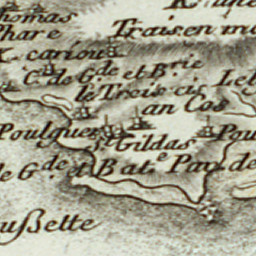 Thomas
Phare
Traisen
K. cariou
C. de G.de et B.rie
le Treis
an Cos
Poulguer
St Gildas
Pou
de G.de et Bat.e Pau de
ußette